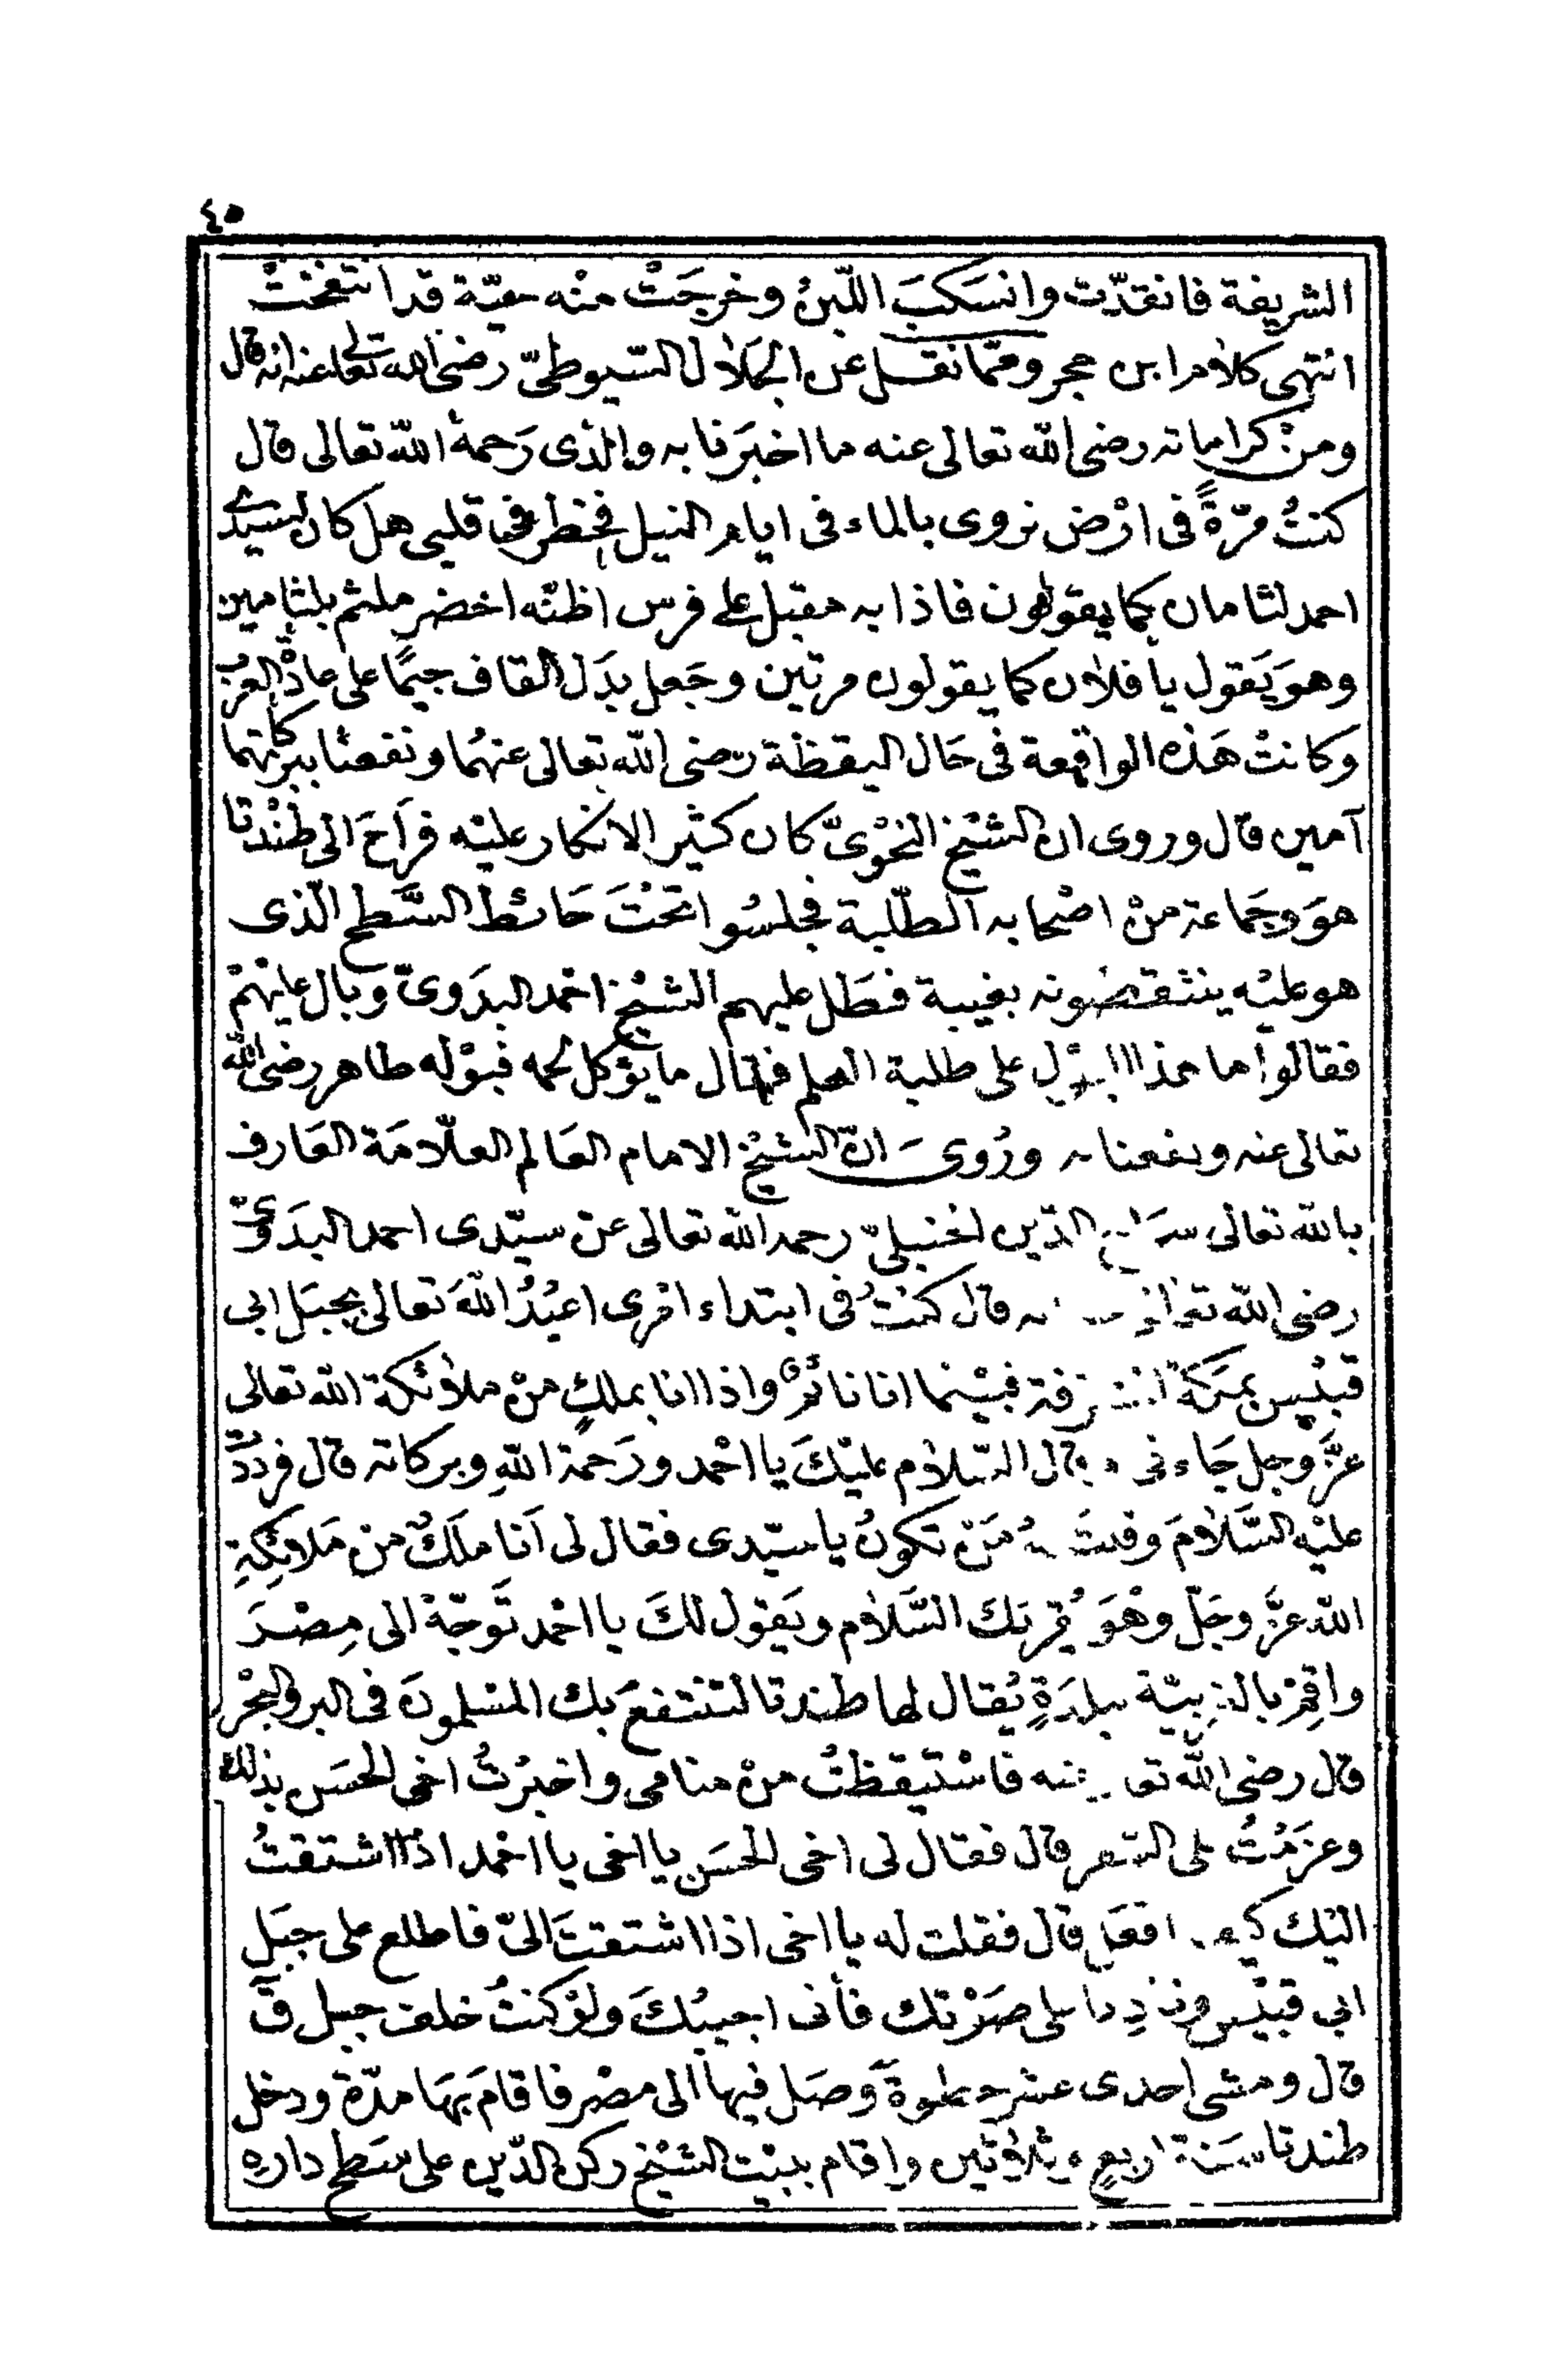 ٤٥
الشريفة فانقدّت وانسَكبَ اللّبنُ وخرجَتْ منْه حيّة قد انتفختْ
انتهى كلام ابن حجر وممّا نقل عن الجلال السّيوطىّ رضى الله تعالى عنه انه قال
ومنْ كراماته رضى الله تعالى عنه ما اخبَرنا به والذى رَحمهُ الله تعالى قال
كنتُ مرّةً فى ارْض نروى بالماء فى ايام النيل فخطر فى قلبى هل كان لسيدى
احمد لثامان كما يقولون فاذا به مقبل على فرس اظنّه اخضر ملثم بلثامين
وهوَ يَقول يا فلان كما يقولون مرتين وجَعل بدَل القاف جيمًا على عادة العرب
وكانتْ هَذه الواقعة فى حَال اليقظة رضى الله تعالى عنهُما ونفعنا ببركاتهما
آمين قال وروى ان الشيْخ النحْوىّ كان كثير الانكار عليْه فرَاحَ الى طنْدتا
هوَ وجَماعة منْ اصْحابه الطّلبة فجلسُوا تحْتَ حَائط السَّطح الّذى
هو عليْه ينتقضونه بغيبة فطَل عليهم الشيْخ احْمد البدَوىّ وبال عليْهمْ
فقالوا ما هذا البوْل على طلبة العلم فقال ما يؤكل لحمه فبوْله طاهر رضى الله
تعالى عنه ونفعنا به ورُوىَ انّ الشيْخ الامام العَالم العلّامَة العَارف
بالله تعالى سرَاج الدّين الحنبلىّ رحمه الله تعالى عنْ سيّدى احمد البدَوىّ
رضى الله تعالى عنه قال كنتُ فى ابتداء امْرى اعبُدُ اللهَ تعالى بجبَل ابى
قبيْس بمَكة المشرفة فبيْنما انا نائمٌ واذا انا بملكٍ منْ ملائكة الله تعالى
عزَّ وجل جَاءنى وقال السّلام عليْكَ يا احْمد ورَحمة اللهِ وبركاته قال فردَدْتُ
عليْه السَّلامَ وقلتُ لهُ مَنْ تكونُ يا سيّدى فقال لى اَنا ملَكٌ من مَلائِكِةِ
الله عزَّ وجَلّ وهْوَ يُقرئك السَّلام ويَقول لكَ يا احْمد تَوجّهْ الى مِصْرَ
واقِمْ بالغربيّة ببلدَةٍ يُقال لها طندتا لتنتفعَ بك المسْلمونَ فى البر والبحْر
قال رضى الله تعالى عنه فاسْتيقظتُ منْ منامى واخبرْتُ اخى الحسَن بذلك
وعزَمْتُ على السّفر قال فقال لى اخى الحسَن يا اخى يا احْمد اذا اشتقتُ
اليْك كيف افعَل قال فقلت له يا اخى اذا اشتقتَ الىّ فاطلع على جبَلِ
ابى قبيْس ونادِ على صَوْتك فأنى اجيبُكَ ولوْ كنتُ خلف جبل قَ
قال ومشى احدى عشر خطوةَ وَصَل فيها الى مصْر فاقامَ بهَا مدّة ودخل
طندتا سَنة اربعٍ وثلاثين واقام ببيْت الشيْخ ركن الدّين على سَطح دارهِ